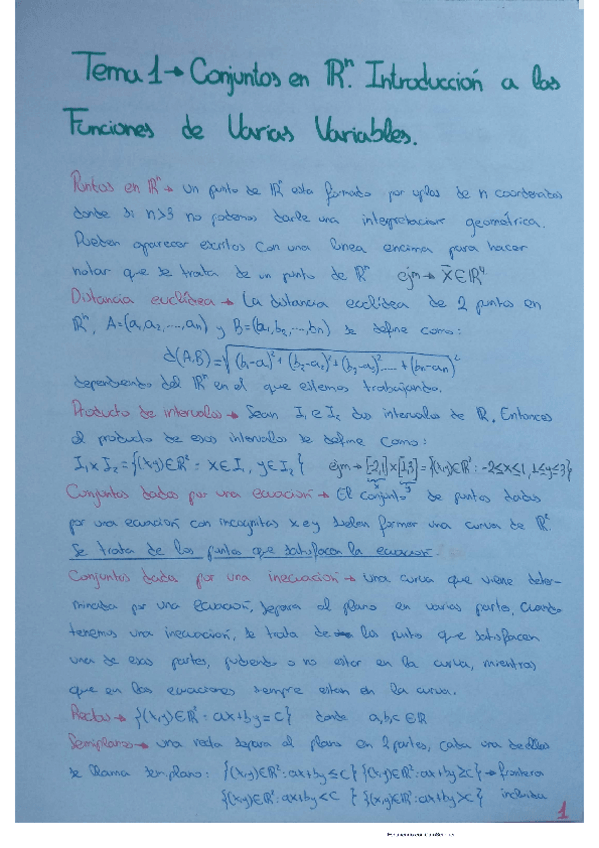 Tema 1 → Conjuntos en ℝⁿ. Introducción a las
Funciones de Varias Variables.
Puntos en ℝⁿ → Un punto de ℝⁿ esta formado por uplas de n coordenadas
donde si n>3 no podemos darle una interpretacion geométrica.
Pueden aparecer escritos con una linea encima para hacer
notar que se trata de un punto de ℝⁿ ejm → x̄ ∈ ℝ⁴
Distancia euclídea → La distancia euclídea de 2 puntos en
ℝⁿ, A=(a₁,a₂,...,aₙ) y B=(b₁,b₂,...,bₙ) se define como:
d(A,B)=√(b₁-a₁)²+(b₂-a₂)²+(b₃-a₃)²,....+(bₙ-aₙ)²
dependiendo del ℝⁿ en el que estemos trabajando.
Producto de intervalos → Sean I₁ e I₂ dos intervalos de ℝ. Entonces
el producto de esos intervalos se define como:
I₁ x I₂ = {(x,y)∈ℝ² : x∈I₁, y∈I₂} ejm → [-2,1]x[1,3]={(x,y)∈ℝ² : -2≤x≤1, 1≤y≤3}
Conjuntos dados por una ecuación → El conjunto de puntos dados
por una ecuación con incognitas x e y suelen formar una curva de ℝ².
Se trata de los puntos que satisfacen la ecuación.
Conjuntos dada por una inecuación → una curva que viene deter-
minada por una ecuación, separa al plano en varias partes, cuando
tenemos una inecuación, se trata de los punto que satisfacen
una de esas partes, pudiendo o no estar en la curva, mientras
que en las ecuaciones siempre estan en la curva.
Rectas → {(x,y)∈ℝ² : ax+by=c} donde a,b,c∈ℝ
Semiplanos → una recta separa al plano en 2 partes, cada una de ellas
se llama semiplano: {(x,y)∈ℝ²:ax+by≤c} {(x,y)∈ℝ²:ax+by≥c} → frontera
{(x,y)∈ℝ²:ax+by<c} {(x,y)∈ℝ²:ax+by>c} incluida
1